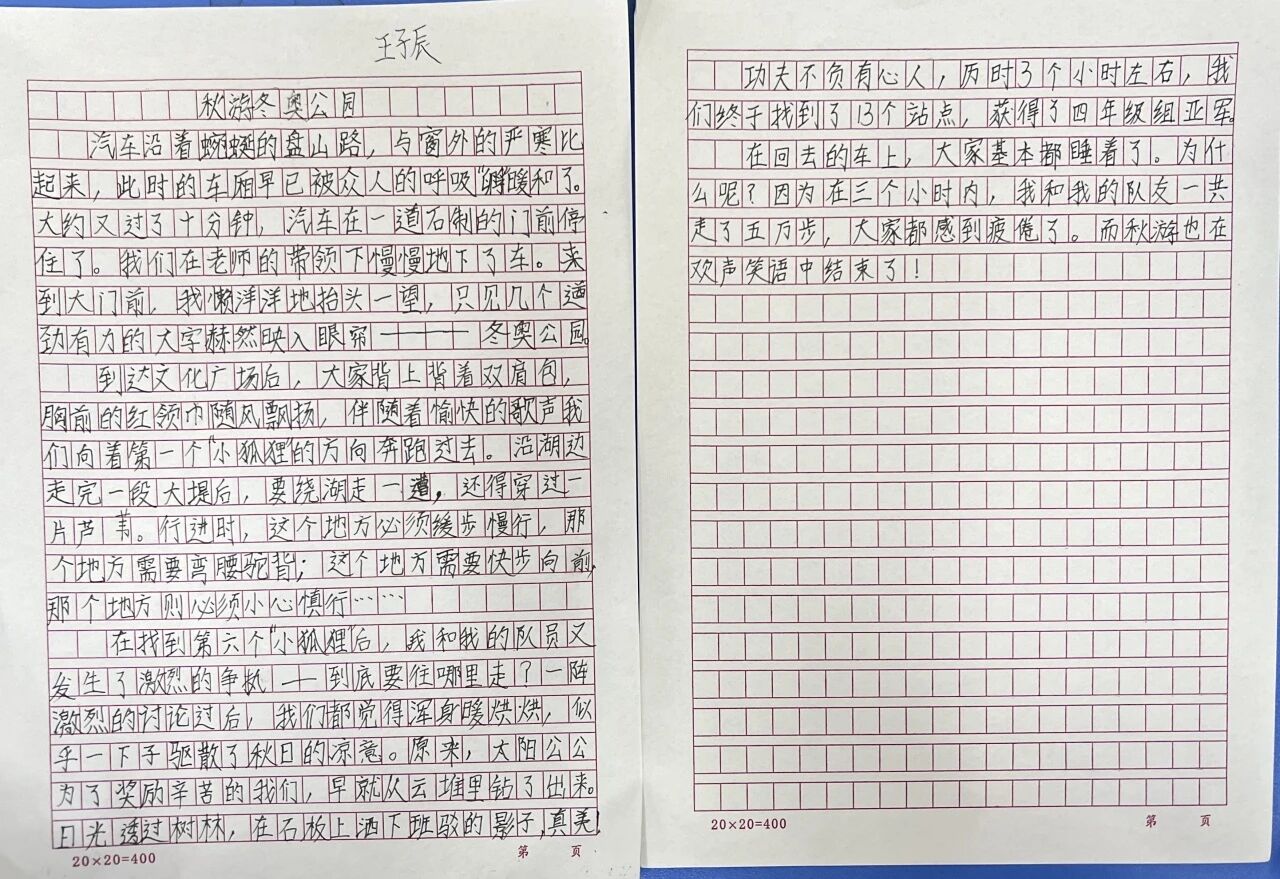 王子辰
秋游冬奥公园
汽车沿着蜿蜒的盘山路，与窗外的严寒比
起来，此时的车厢早已被众人的呼吸“孵”暖和了。
大约又过了十分钟，汽车在一道石制的门前停
住了。我们在老师的带领下慢慢地下了车。来
到大门前，我懒洋洋地抬头一望，只见几个遒
劲有力的大字赫然映入眼帘———冬奥公园。
到达文化广场后，大家背上背着双肩包，
胸前的红领巾随风飘扬，伴随着愉快的歌声我
们向着第一个“小狐狸”的方向奔跑过去。沿湖边
走完一段大堤后，要绕湖走一遭，还得穿过一
片芦苇。行进时，这个地方必须缓步慢行，那
个地方需要弯腰驼背；这个地方需要快步向前，
那个地方则必须小心慎行……
在找到第六个“小狐狸”后，我和我的队员又
发生了激烈的争执——到底要往哪里走？一阵
激烈的讨论过后，我们都觉得浑身暖烘烘，似
乎一下子驱散了秋日的凉意。原来，太阳公公
为了奖励辛苦的我们，早就从云堆里钻了出来。
日光透过树林，在石板上洒下班驳的影子，真美！
20×20=400
第 页
功夫不负有心人，历时3个小时左右，我
们终于找到了13个站点，获得了四年级组亚军。
在回去的车上，大家基本都睡着了。为什
么呢？因为在三个小时内，我和我的队友一共
走了五万步，大家都感到疲倦了。而秋游也在
欢声笑语中结束了！
20×20=400
第 页